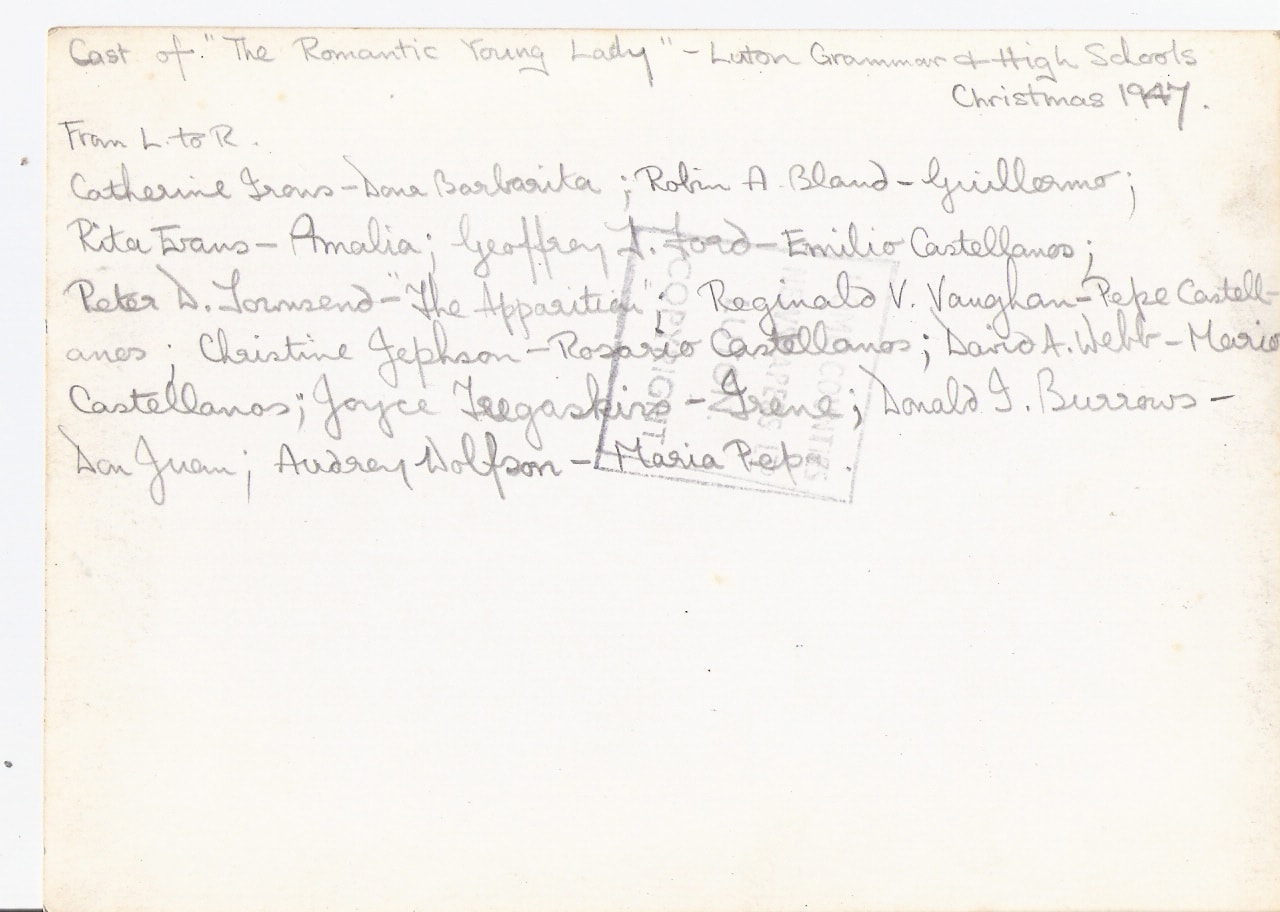 Cast of "The Romantic Young Lady" - Luton Grammar & High Schools
Christmas 1947.
From L. to R.
Catherine Irons - Dona Barbarita ; Robin A. Bland - Guillermo ;
Rita Evans - Amalia ; Geoffrey T. Ford - Emilio Castellanos ;
Peter D. Townsend - "The Apparition" ; Reginald V. Vaughan - Pepe Castell-
anos ; Christine Jephson - Rosario Castellanos ; David A. Webb - Mario
Castellanos ; Joyce Tregaskins - Irene ; Donald I. Burrows -
Don Juan ; Audrey Wolfson - Maria Pepa .
COPYRIGHT